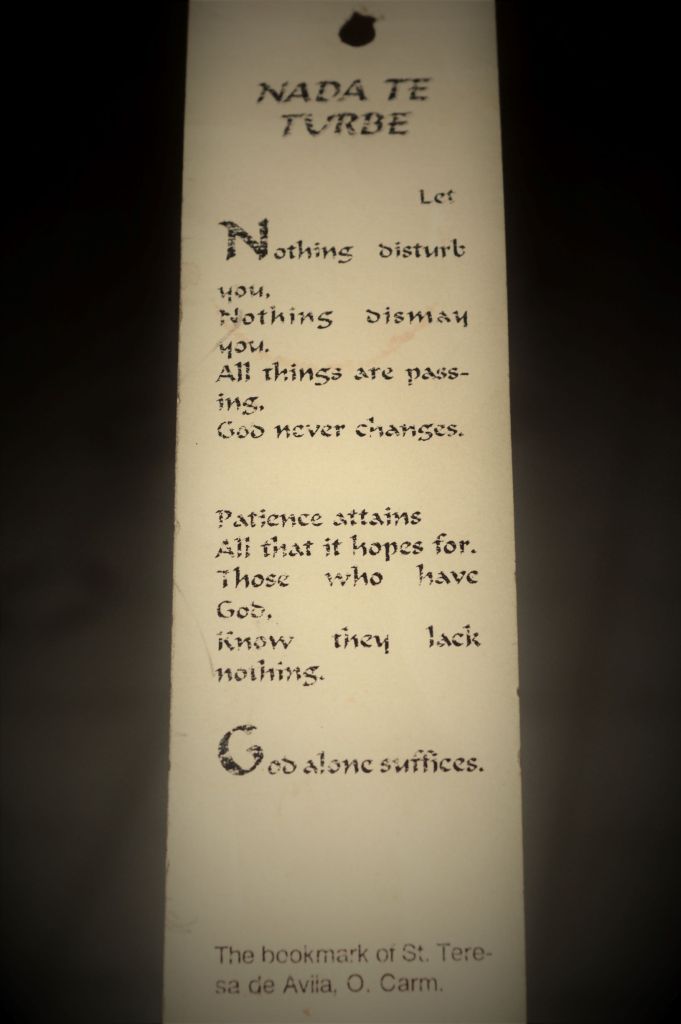 NADA TE
TURBE
Let
Nothing disturb
you,
Nothing dismay
you.
All things are pass-
ing,
God never changes.
Patience attains
All that it hopes for.
Those who have
God,
Know they lack
nothing.
God alone suffices.
The bookmark of St. Tere-
sa de Avila, O. Carm.